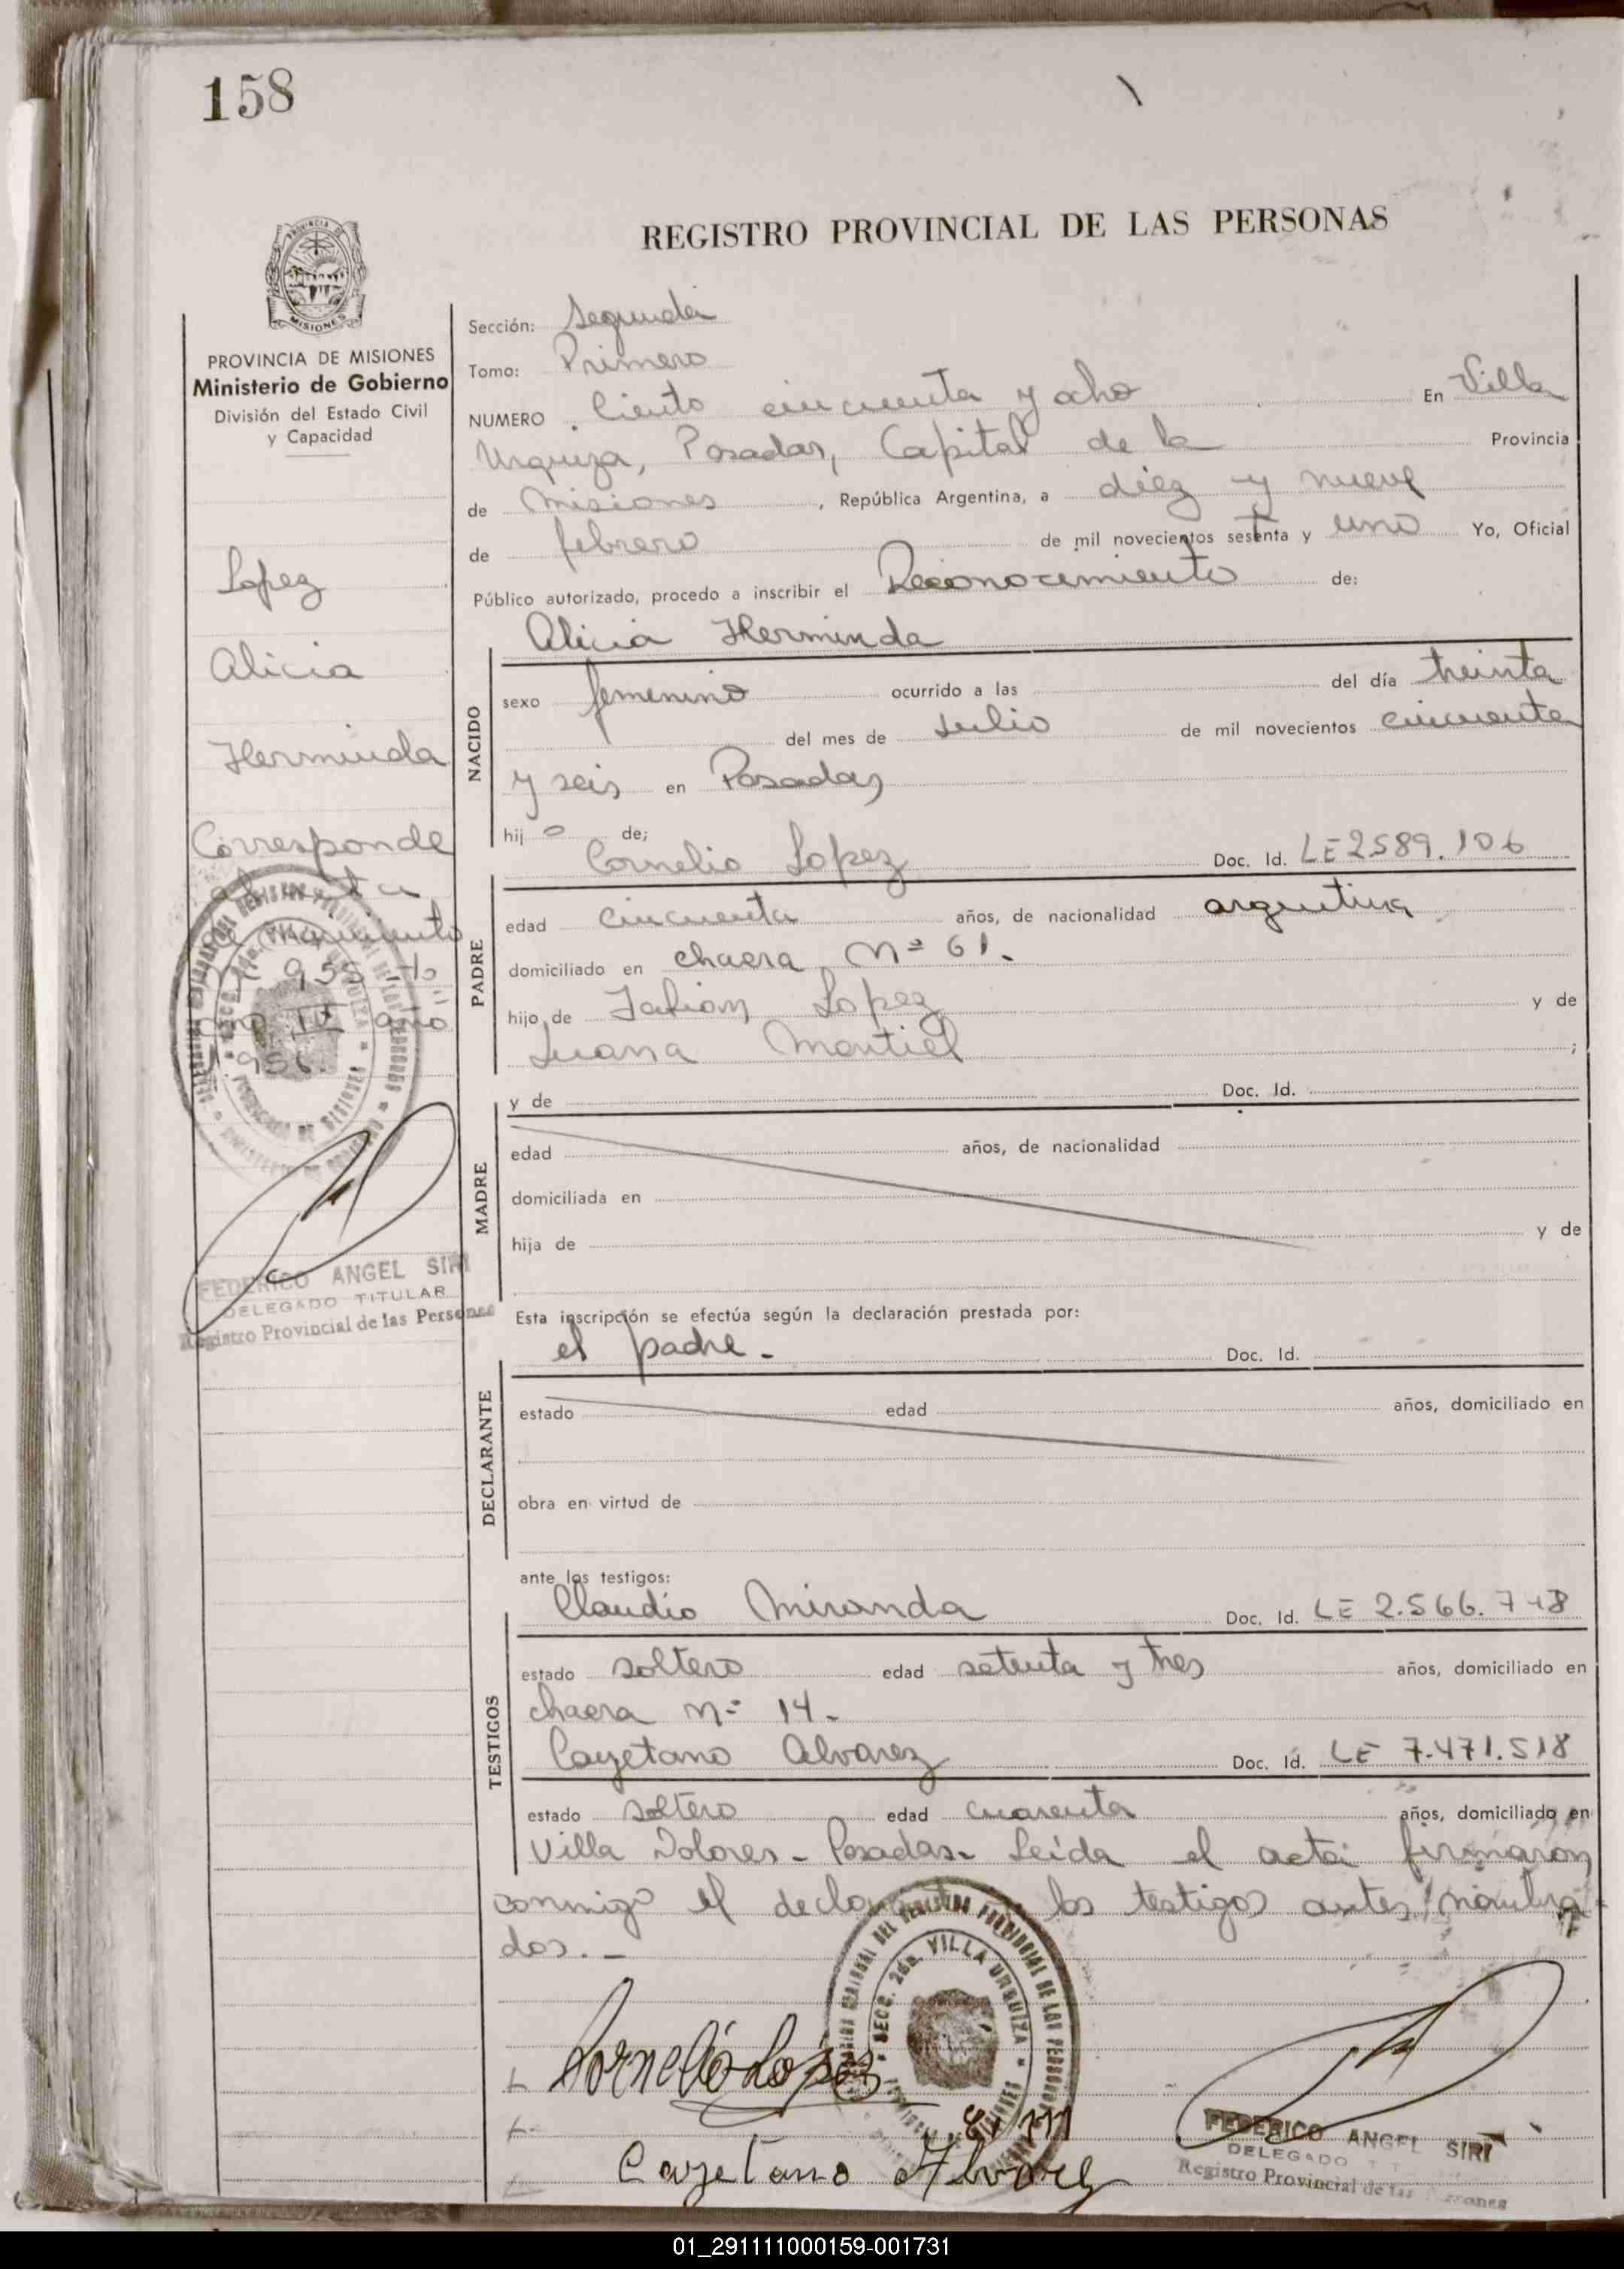 158
REGISTRO PROVINCIAL DE LAS PERSONAS
PROVINCIA DE MISIONES
Ministerio de Gobierno
División del Estado Civil
y Capacidad
Lopez
Alicia
Herminda
Corresponde
al acta
de nacimiento
Nº 955 to
mo IV año
1.956.
FEDERICO ANGEL SIRI
DELEGADO TITULAR
Registro Provincial de las Personas
Sección: Segunda
Tomo: Primero
NUMERO Ciento cincuenta y ocho En Villa
Urquiza, Posadas, Capital de la Provincia
de Misiones, República Argentina, a diez y nueve
de febrero de mil novecientos sesenta y uno Yo, Oficial
Público autorizado, procedo a inscribir el Reconocimiento de:
Alicia Herminda
NACIDO
sexo femenino ocurrido a las del día treinta
del mes de Julio de mil novecientos cincuenta
y seis en Posadas
hij o de;
Cornelio Lopez Doc. Id. LE 2589.106
PADRE
edad cincuenta años, de nacionalidad argentina
domiciliado en chacra Nº 61.
hijo de Fabian Lopez y de
Juana Montiel ;
y de Doc. Id.
MADRE
edad años, de nacionalidad
domiciliada en
hija de y de
Esta inscripción se efectúa según la declaración prestada por:
el padre.- Doc. Id.
DECLARANTE
estado edad años, domiciliado en
obra en virtud de
ante los testigos:
Claudio Miranda Doc. Id. LE 2.566.748
TESTIGOS
estado soltero edad setenta y tres años, domiciliado en
chacra Nº 14.-
Cayetano Alvarez Doc. Id. LE 7.471.518
estado soltero edad cuarenta años, domiciliado en
Villa Dolores - Posadas. Leida el acta firmaron
conmigo el declarante los testigos antes nombra-
dos.-
SECC. 2da. VILLA URQUIZA
Cornelio Lopez
Cayetano Alvarez
FEDERICO ANGEL SIRI
DELEGADO
Registro Provincial de las
01_291111000159-001731